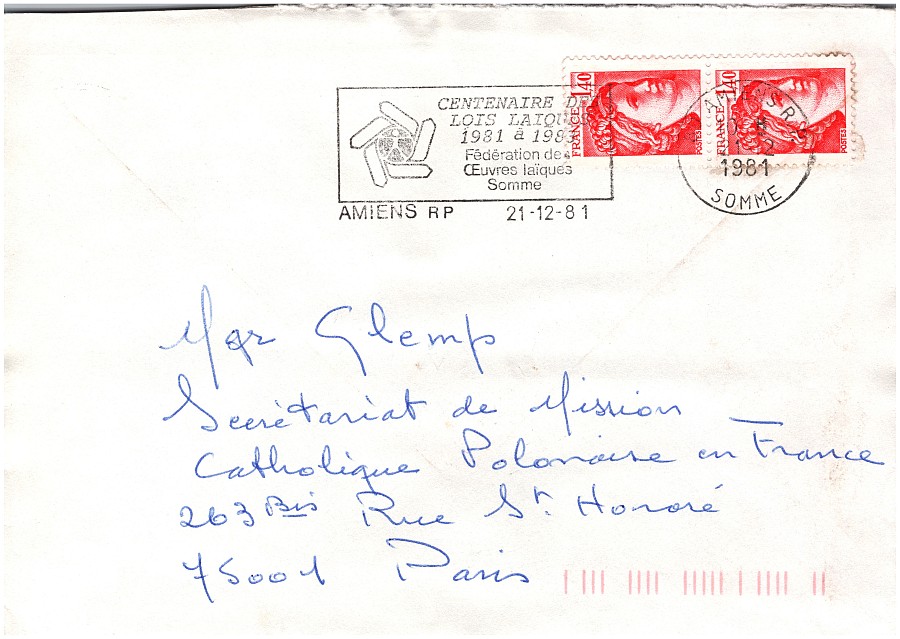 CENTENAIRE DE
LOIS LAIQUES
1981 à 1983
Fédération de
Œuvres laïques
Somme
AMIENS RP 21-12-81
FRANCE 1,40
POSTES
FRANCE 1,40
POSTES
AMIENS R.P.
1981
SOMME
Mgr Glemp
Secrétariat de Mission
Catholique Polonaise en France
263 Bis Rue St. Honoré
75001 Paris